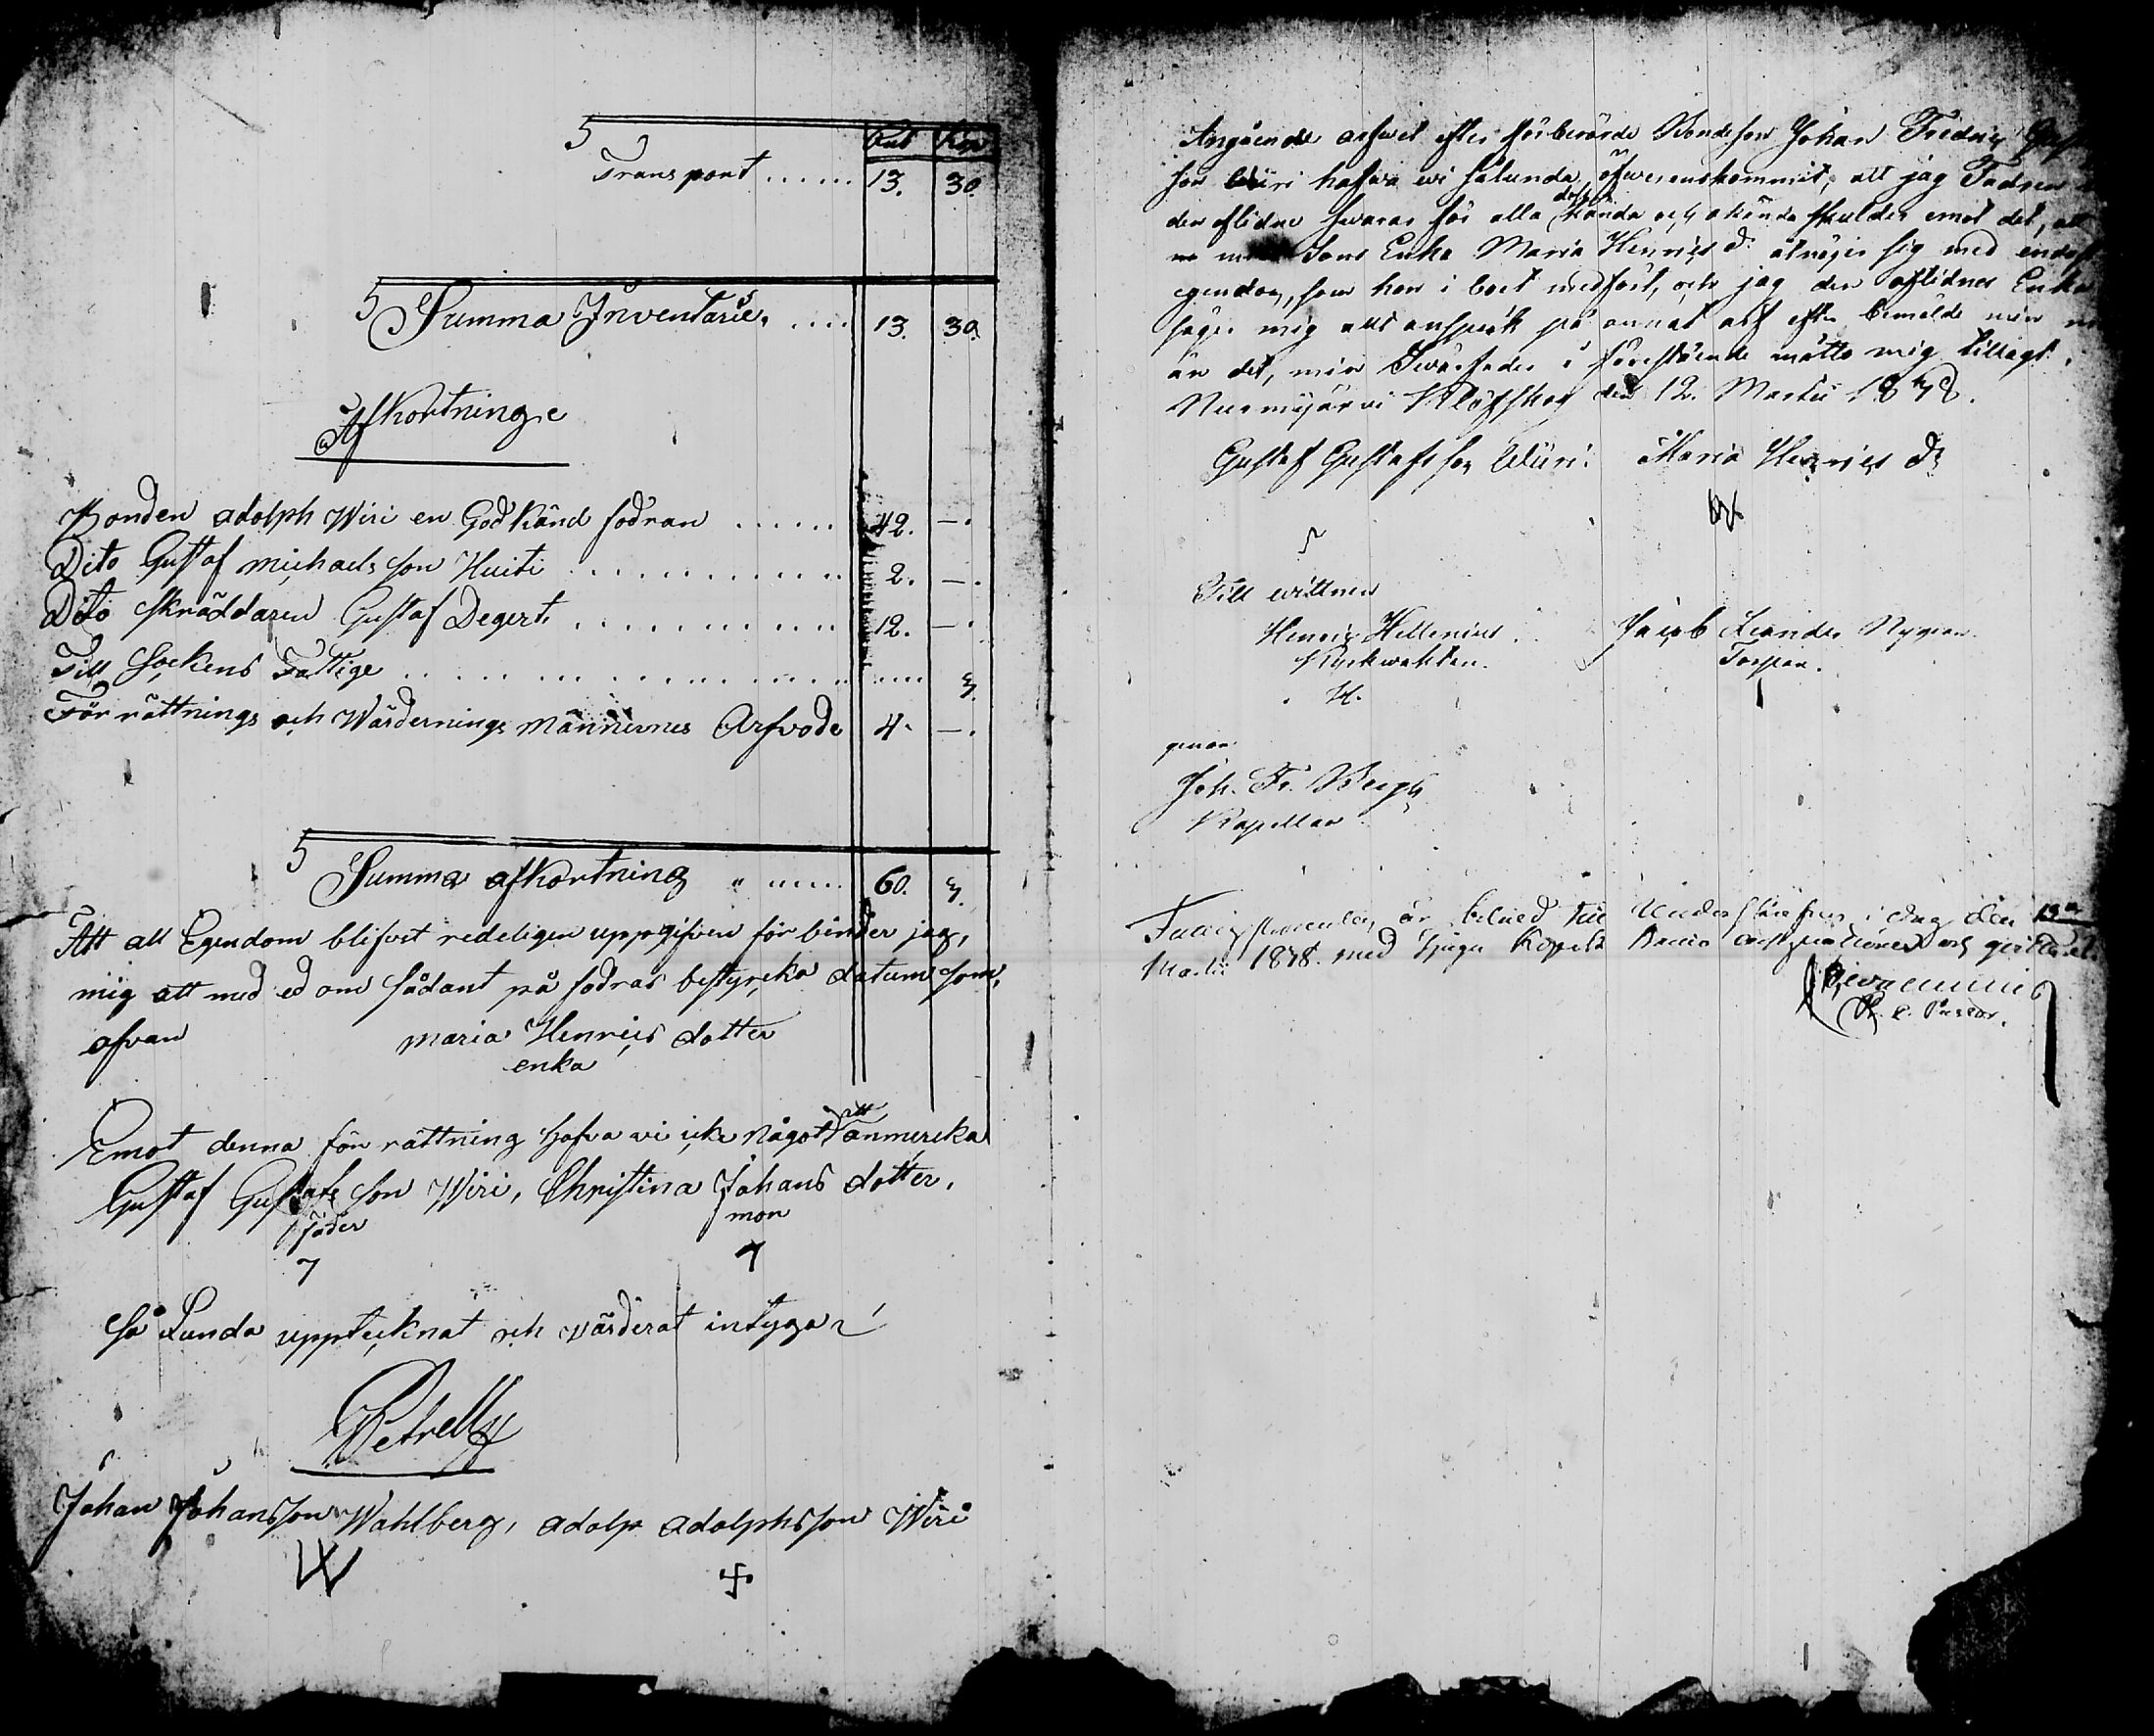 Rub Kop
Transport ...... 13. 30.
Summa Inventarie. .... 13. 30.
Afkortning
Bonden adolph Wiri en Godkänd fodran ...... 42. —.
Dito Gustaf michaels son Huiti ............ 2. —.
Dito skräddaren Gustaf Degert. ............ 12. —.
Till Sockens Fattige ............ 3.
För rättnings och Wärdernings Männernes Arfvode 4. —.
Summa afkortning " ..... 60. 3.
Att all Egendom blifvit redeligen uppgifven för binder jag,
mig att med ed om sådant på fodras bestyrcka datum som,
ofvan maria Henrics dotter
enka
Emot denna för rättning hafva vi icke något att anmercka
Gustaf Gustafs son Wiri, Christina Johans dotter.
fader mor
Så Lunda upptecknat och värderat intygar
Petrell
Johan Johansson Wahlberg, adolp adolphsson Wiri
Angående arfvet efter förberörde Bondeson Johan Fredric
son Wiiri hafva wi sålunda öfwerenskommit, att jag Fadren
den aflidne swarar för alla dess kända och okända skulder emot det, att
min Sons Enka Maria Henrics dr åtnöjer sig med endast
egendom, som hon i boet medfört, och jag den aflidnes Enka
säger mig allt anspråk på annat arf efter bemälde min
än det, min Swärfader i förestående måtto mig tillagt.
Nurmijärvi Klöfskog den 12. Martii 1848.
Gustaf Gustafsson Wiiri. Maria Henrics dr
Till wittnen
Henric Hellenius. Jacob Leander Nygren
Kyrkwaktare. Torpare.
H.
genom
Joh. Fr. Bergh
Kapellan
är belned till Underskrefven i dag den 13de
Martii 1848. med tjugu Kopek och qvitteradt